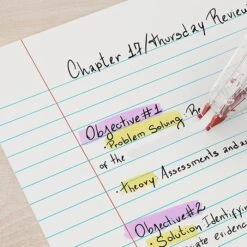 Chapter 17/Thursday Review
Objective #1
· Problem Solving
of the
· Theory Assessments and
Objective #2
· Solution Identifying
evidenc